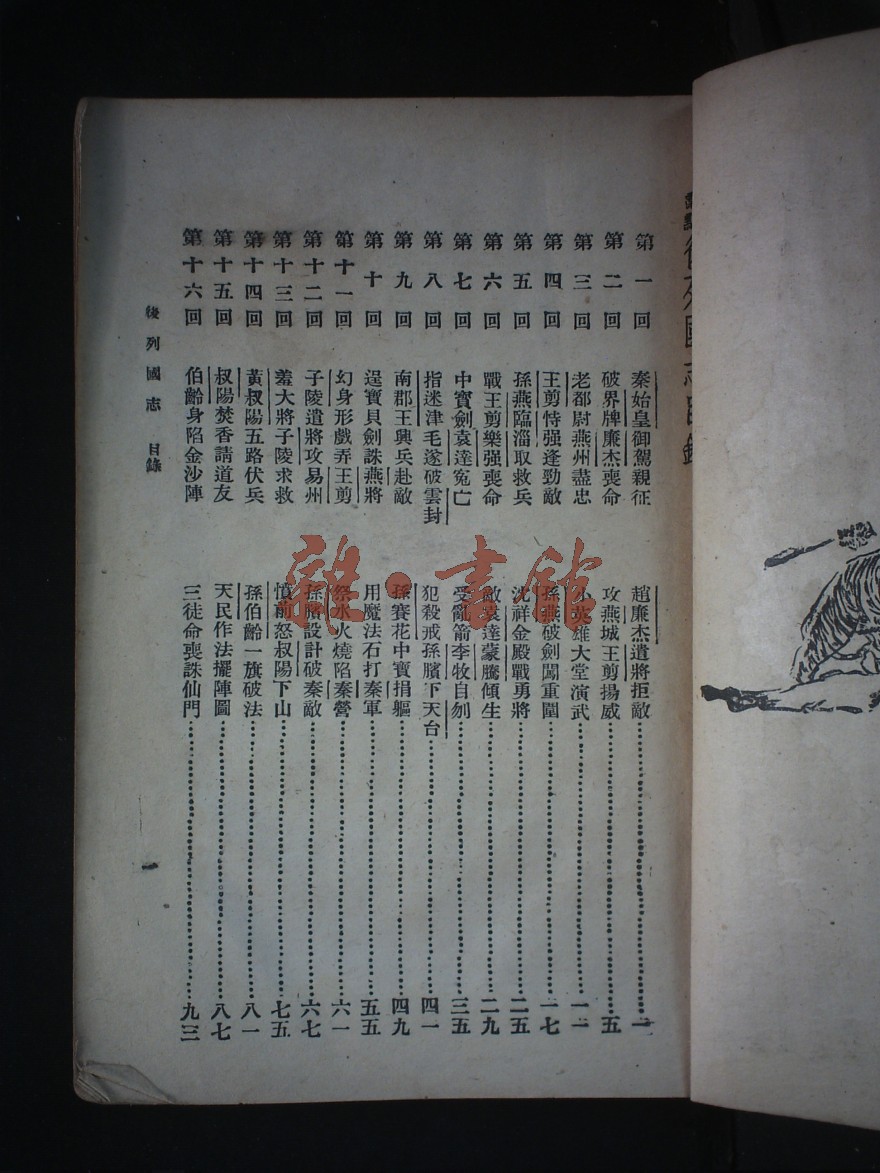 後列國志目錄
第一回 秦始皇御駕親征 趙廉杰遣將拒敵 一
第二回 破界牌廉杰喪命 攻燕城王剪揚威 五
第三回 老都尉燕州盡忠 小英雄大堂演武 一一
第四回 王剪恃强逢勁敵 孫燕破劍闖重圍 一七
第五回 孫燕臨淄取救兵 沈祥金殿戰勇將 二五
第六回 戰王剪樂强喪命 敵袁達蒙騰傾生 二九
第七回 中寶劍袁達寃亡 受亂箭李牧自刎 三五
第八回 指迷津毛遂破雲封 犯殺戒孫臏下天台 四一
第九回 南郡王興兵赴敵 孫賽花中寶捐軀 四九
第十回 逞寶貝劍誅燕將 用魔法石打秦軍 五五
第十一回 幻身形戲弄王剪 祭水火燒陷秦營 六一
第十二回 子陵遣將攻易州 孫臏設計破秦敵 六七
第十三回 羞大將子陵求救 憤前怒叔陽下山 七五
第十四回 黃叔陽五路伏兵 孫伯齡一旗破法 八一
第十五回 叔陽焚香請道友 天民作法擺陣圖 八七
第十六回 伯齡身陷金沙陣 三徒命喪誅仙門 九三
後列國志 目錄
一
雜·書館